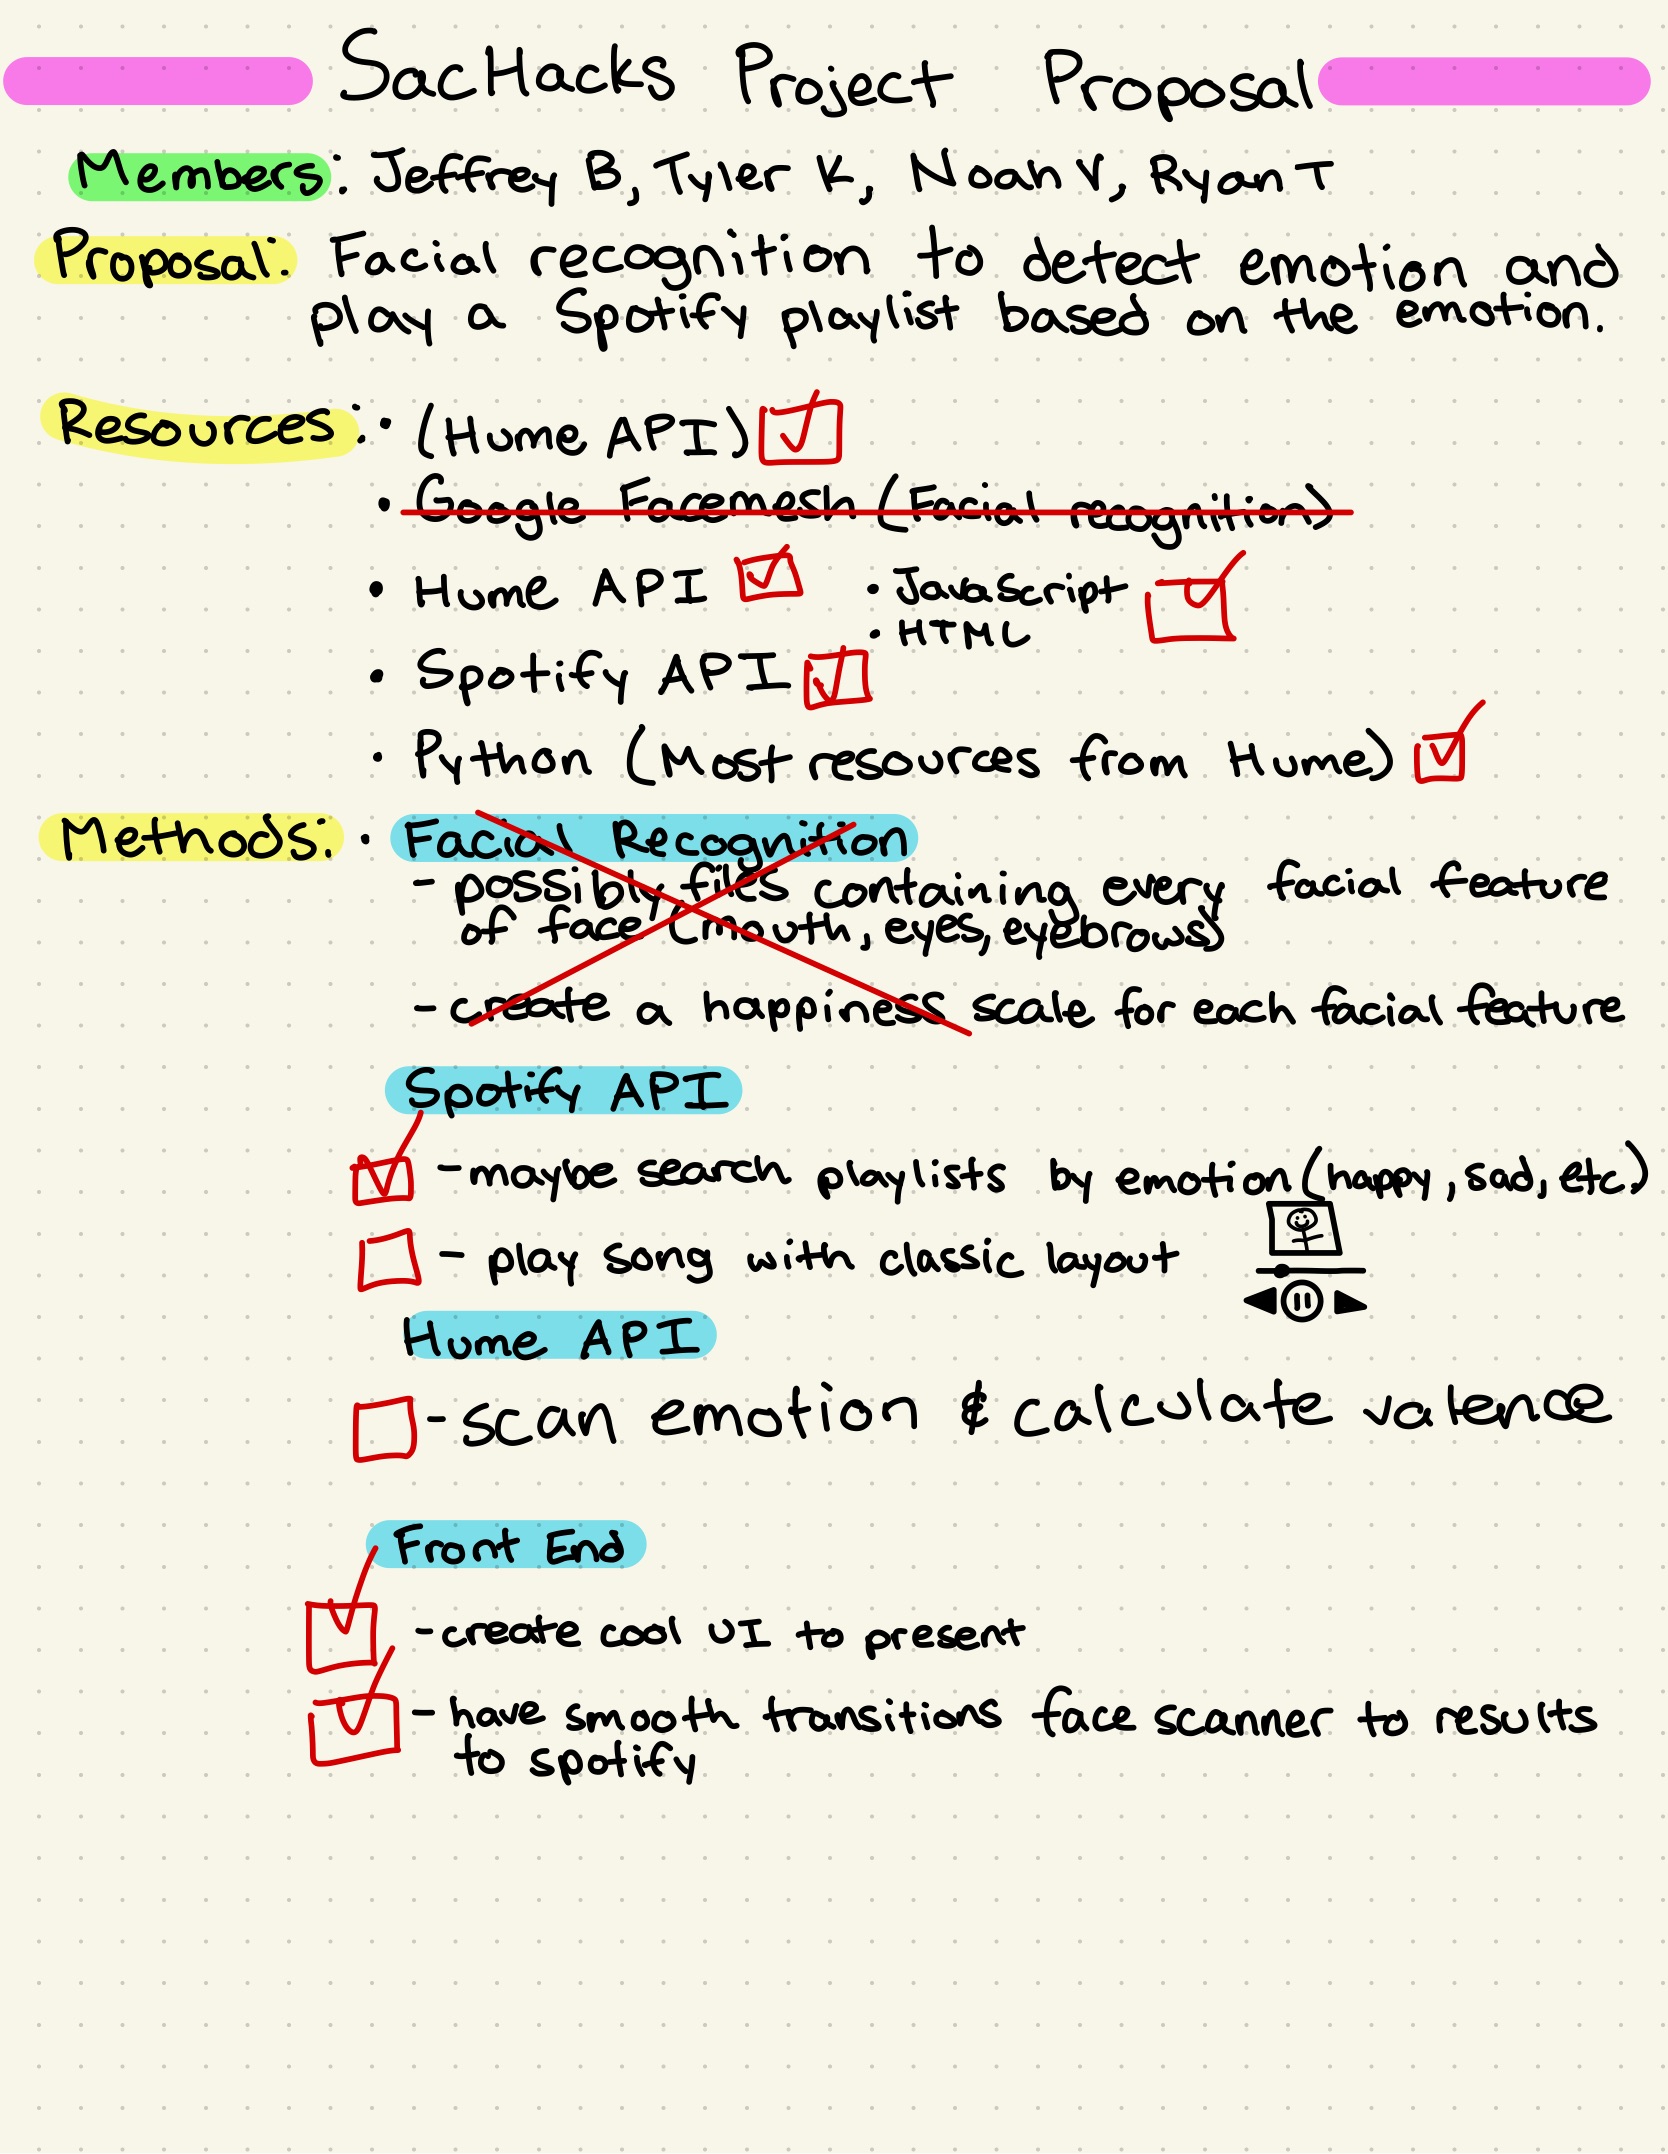 SacHacks Project Proposal
Members: Jeffrey B, Tyler K, Noah V, Ryan T
Proposal: Facial recognition to detect emotion and
play a Spotify playlist based on the emotion.
Resources: • (Hume API)
• Google Facemesh (Facial recognition)
• Hume API • JavaScript
• HTML
• Spotify API
• Python (Most resources from Hume)
Methods: • Facial Recognition
- possibly files containing every facial feature
of face (mouth, eyes, eyebrows)
- create a happiness scale for each facial feature
Spotify API
- maybe search playlists by emotion (happy, sad, etc.)
- play song with classic layout
Hume API
- scan emotion & calculate valence
Front End
- create cool UI to present
- have smooth transitions face scanner to results
to spotify